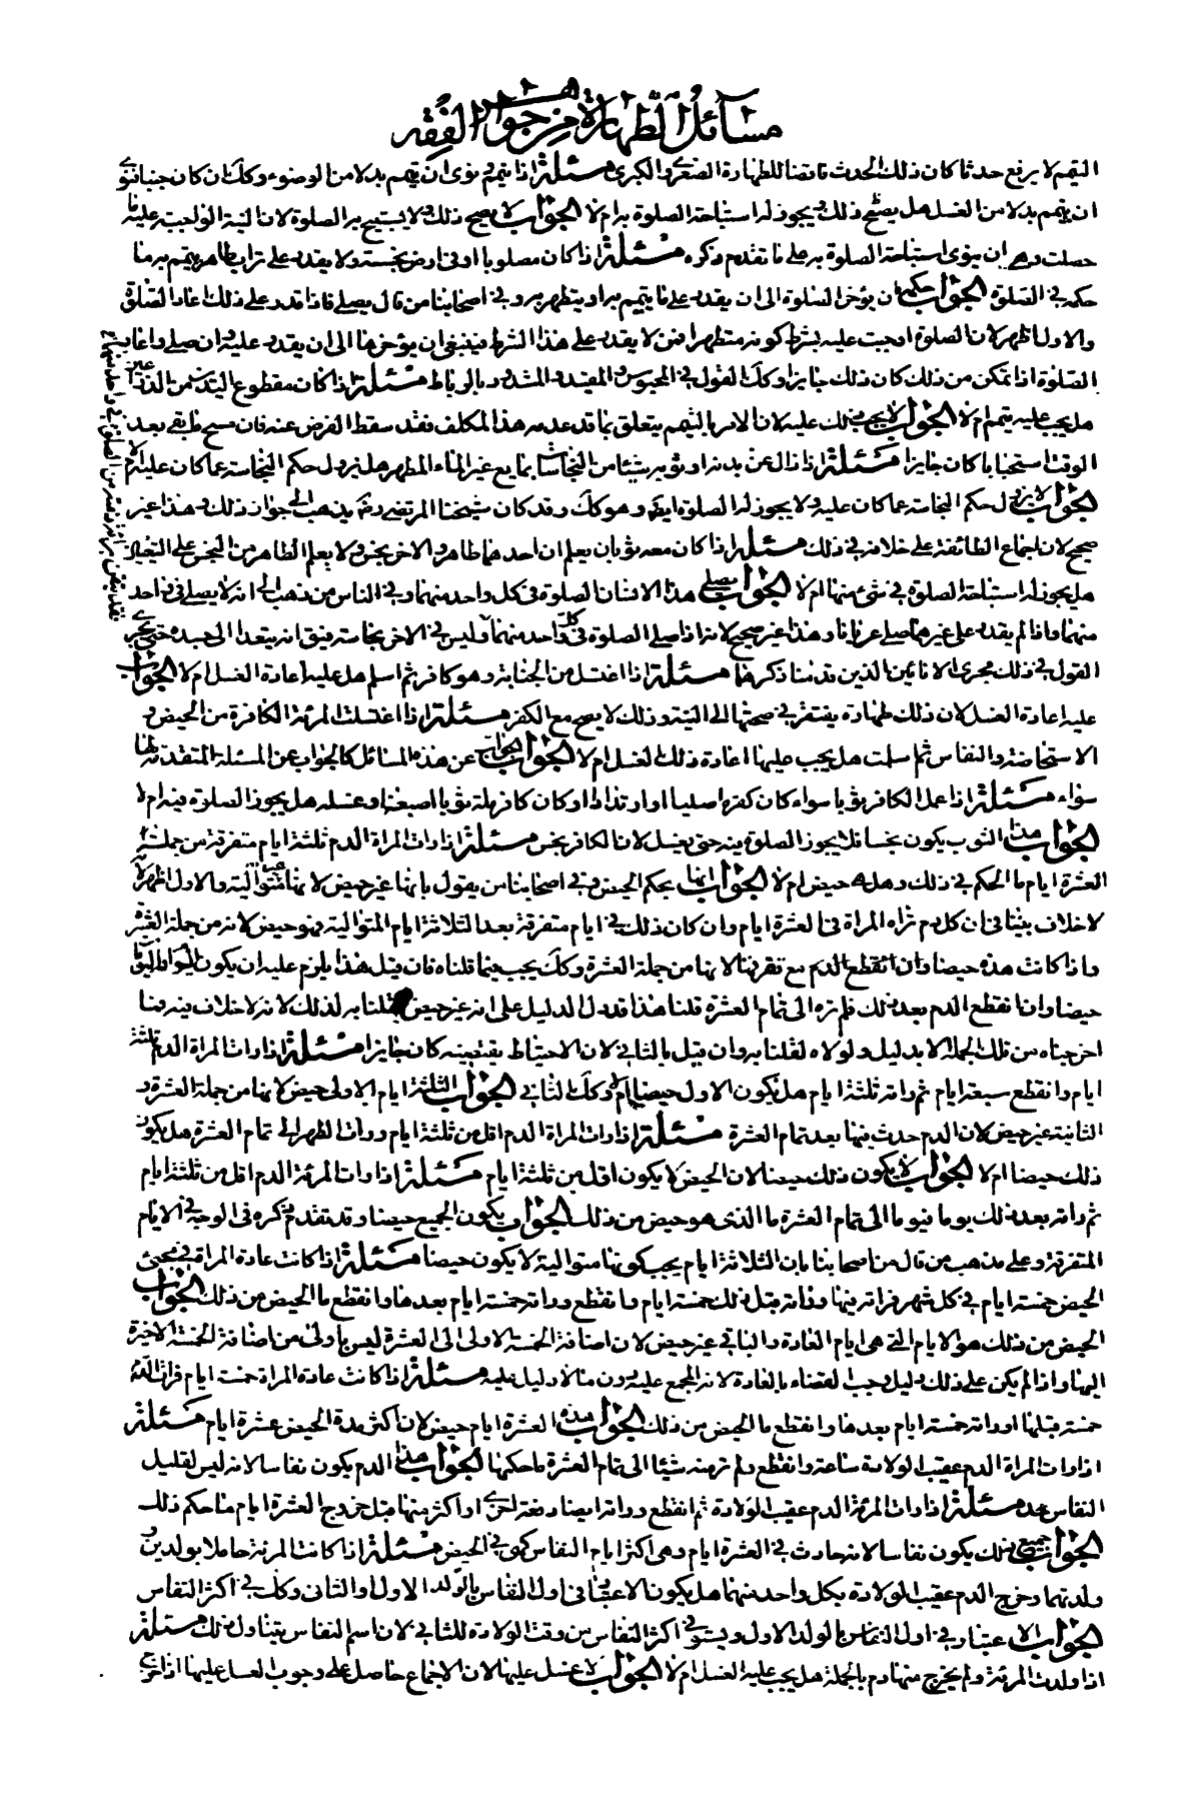 مسائل الطهارة من جواهر الفقه
التيمم لا يرفع حدثا كان ذلك الحدث ناقضا للطهارة الصغرى والكبرى مسئلة اذا تيمم ونوى ان تيمم بدلا من الوضوء وكك ان كان جنبا نوى
ان يتمم بدلا من الغسل هل يصح ذلك ويجوز له استباحة الصلوة به ام لا الجواب لا يصح ذلك ولا يستبيح به الصلوة لان النية الواجبة عليه ما
حصلت وهى ان ينوى استباحة الصلوة به على ما تقدم ذكره مسئلة اذا كان مصلوبا او فى ارض نجسة ولا يقدر على تراب طاهر يتيمم به ما
حكمه فى الصلوة الجواب حكمه ان يؤخر الصلوة الى ان يقدر على ما يتيمم به او يتطهر به وفى اصحابنا من قال يصلى فاذا قدر على ذلك اعاد الصلوة
والاول اظهر لان الصلوة اوجبت عليه بشرط كونه متطهرا فمن لا يقدر على هذا الشرط فينبغى ان يؤخرها الى ان يقدر عليه وان صلى واعاد
الصلوة اذا تمكن من ذلك كان ذلك جايزا وكك القول فى المحبوس والمقيد والمشدود بالرباط مسئلة اذا كان مقطوع اليدين من الذراعين
هل يجب عليه تيمم ام لا الجواب لا يجب ذلك عليه لان الامر بالتيمم يتعلق بما قد عدمه هذا المكلف فقد سقط الفرض عنه فان مسح ما بقى بعد
الوقت استحبابا كان جايزا مسئلة اذا زال عن بدنه او ثوبه شيئا من النجاسات بمايع غير الماء المطهر هل يزول حكم النجاسة عما كان عليه ام لا
الجواب لا يزول حكم النجاسة عما كان عليه ولا يجوز له الصلوة فيه وهو كك وقد كان شيخنا المرتضى رضى يذهب الى جواز ذلك وهذا غير
صحيح لان اجماع الطائفة على خلافه فى ذلك مسئلة اذا كان معه ثوبان يعلم ان احدهما طاهر والاخر نجس ولا يعلم الطاهر من النجس على التعيين
هل يجوز له استباحة الصلوة فى شئ منهما ام لا الجواب يصلى هذا الانسان الصلوة فى كل واحد منهما وفى الناس من ذهب الى انه لا يصلى فى واحد
منهما واذا لم يقدر على غيرهما صلى عريانا وهذا غير صحيح لانه اذا صلى الصلوة فى كل واحد منهما وليس فى الاخر نجاسة
القول فى ذلك مجرى الانائين الذين قدمنا ذكرهما مسئلة اذا اغتسل من الجنابة وهو كافر ثم اسلم هل عليه اعادة الغسل ام لا الجواب
عليه اعادة الغسل لان ذلك طهارة يفتقر فى صحتها الى النية وذلك لا يصح مع الكفر مسئلة اذا اغتسلت المرئة الكافرة من الحيض و
الاستحاضة والنفاس ثم اسلمت هل يجب عليها اعادة ذلك الغسل ام لا الجواب الجواب عن هذه المسائل كالجواب عن المسئلة المتقدمة لها
سواء مسئلة اذا عمل الكافر ثوبا سواء كان كفره اصليا او ارتدادا او كان كافر ملة ثوبا اصبغه او غسله هل يجوز الصلوة فيه ام لا
الجواب هذا الثوب يكون نجسا فلا يجوز الصلوة فيه حتى يغسل لان الكافر نجس مسئلة اذا رات المراة الدم ثلثة ايام متفرقة من جملة
العشرة ايام ما الحكم فى ذلك وهل هو حيض ام لا الجواب انها بحكم الحيض وفى اصحابنا من يقول بانها غير حيض لانها غير متوالية والاول اظهر لانه
لا خلاف بيننا فى ان كل دم تراه المراة فى العشرة ايام وان كان ذلك فى ايام متفرقة بعد الثلاثة ايام المتوالية فهو حيض لانه من جملة العشرة
واذا كانت هذه حيضا وان انقطع الدم مع تفرقها لانها من جملة العشرة وكك يجب فيما قلناه فان قيل هذا يلزم عليه ان يكون
حيضا وان انقطع الدم بعد ذلك فلم تره الى تمام العشرة قلنا هذا قد دل الدليل على انه غير حيض فقلنا به لذلك لانه لا خلاف فيه فما
اخرجناه من تلك الجملة الا بدليل ولولاه لقلنا به وان قيل بالثانى لان الاحتياط يقتضيه كان جايزا مسئلة اذا رات المراة الدم ثلثة
ايام وانقطع سبعة ايام ثم راته ثلثة ايام هل يكون الاول حيضا ام لا وكك الثانى الجواب الثلثة ايام الاولى حيض لانها من جملة العشرة و
الثانية غير حيض لان الدم حدث فيها بعد تمام العشرة مسئلة اذا رات المراة الدم اقل من ثلثة ايام ورات الطهر الى تمام العشرة هل يكون
ذلك حيضا ام لا الجواب لا يكون ذلك حيضا لان الحيض لا يكون اقل من ثلثة ايام مسئلة اذا رات المرئة الدم اقل من ثلثة ايام
ثم راته بعد ذلك يوما فيوما الى تمام العشرة ما الذى هو حيض من ذلك الجواب يكون الجميع حيضا وقد تقدم ذكره فى الوجه فى الايام
المتفرقة وعلى مذهب من قال من اصحابنا بان الثلاثة ايام يجب كونها متوالية لا يكون حيضا مسئلة اذا كانت عادة المراة فى مجئ
الحيض خمسة ايام فى كل شهر فراته فيها وراته قبل ذلك خمسة ايام وانقطع وراته خمسة ايام بعدها وانقطع ما الحيض من ذلك الجواب
الحيض من ذلك هو الايام التى هى ايام العادة والباقى غير حيض لان اضافة الخمسة الاولى الى العشرة ليس باولى من اضافة الخمسة الاخيرة
اليها واذا لم يكن على ذلك دليل وجب القضاء بالعادة لانه المجمع عليه دون ما لا دليل عليه مسئلة اذا كانت عادة المراة خمسة ايام فرات الدم
خمسة قبلها او راته خمسة ايام بعدها وانقطع ما الحيض من ذلك الجواب هذه العشرة ايام حيض لان اكثر مدة الحيض عشرة ايام مسئلة
اذا رات المراة الدم عقيب الولادة ساعة وانقطع ولم تر منه شيئا الى تمام العشرة ما حكمها الجواب هذا الدم يكون نفاسا لانه ليس لقليل
النفاس حد مسئلة اذا رات المرئة الدم عقيب الولادة ثم انقطع وراته ايضا دفعة اخرى او اكثر منها قبل خروج العشرة ايام ما حكم ذلك
الجواب جميع ذلك يكون نفاسا لانه حادث فى العشرة ايام وهى اكثر ايام النفاس كهى فى الحيض مسئلة اذا كانت المرئة حاملا بولدين و
ولدتهما وخرج الدم عقيب الولادة بكل واحد منهما هل يكون الاعتبار فى اول النفاس بالولد الاول او الثانى وكك فى اكثر النفاس
الجواب الاعتبار فى اول النفاس بالولد الاول ويستوفى اكثر النفاس من وقت الولادة للثانى لان اسم النفاس يتناول ذلك مسئلة
اذا ولدت المرئة ولم يخرج منها دم بالجملة هل يجب عليه الغسل ام لا الجواب لا غسل عليها لان الاجماع حاصل على وجوب الغسل عليها اذا خرج